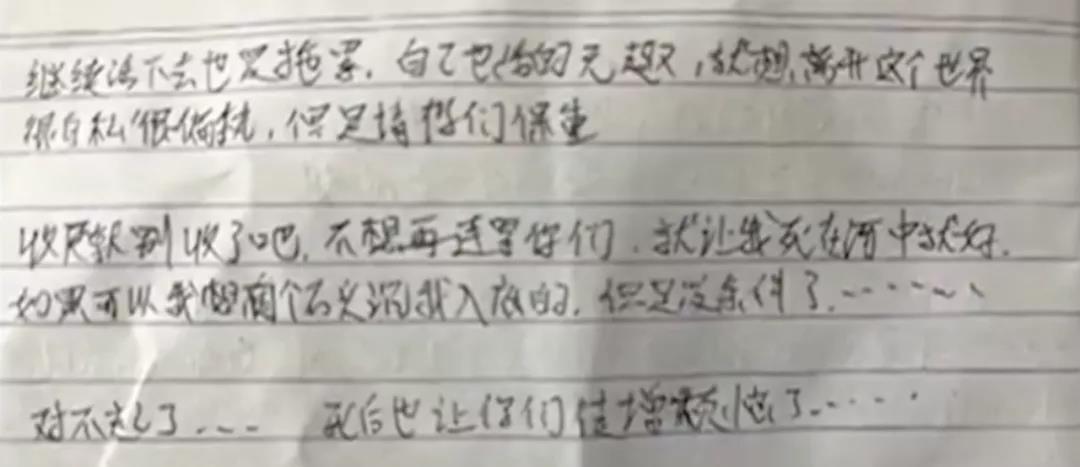 继续活下去也是拖累，自己也活的无趣，就想离开这个世界
很自私很偏执，但是请你们保重
收尸就别收了吧，不想再连累你们，就让我死在河中就好，
如果可以我想有个石头沉我入底的，但是没条件了……
对不起了…… 死后也让你们徒增烦恼了……